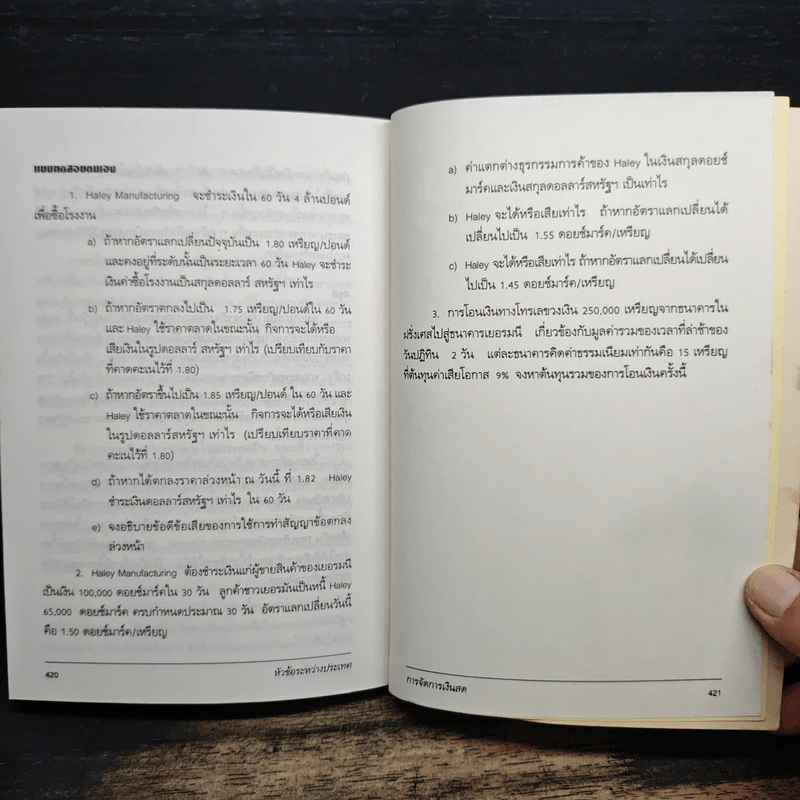 แบบทดสอบตนเอง
1. Haley Manufacturing จะชำระเงินใน 60 วัน 4 ล้านปอนด์
เพื่อซื้อโรงงาน
a) ถ้าหากอัตราแลกเปลี่ยนปัจจุบันเป็น 1.80 เหรียญ/ปอนด์
และคงอยู่ที่ระดับนั้นเป็นระยะเวลา 60 วัน Haley จะชำระ
เงินค่าซื้อโรงงานเป็นสกุลดอลลาร์ สหรัฐฯ เท่าไร
b) ถ้าหากอัตราตกลงไปเป็น 1.75 เหรียญ/ปอนด์ใน 60 วัน
และ Haley ใช้ราคาตลาดในขณะนั้น กิจการจะได้หรือ
เสียเงินในรูปดอลลาร์ สหรัฐฯ เท่าไร (เปรียบเทียบกับราคา
ที่คาดคะเนไว้ที่ 1.80)
c) ถ้าหากอัตราขึ้นไปเป็น 1.85 เหรียญ/ปอนด์ ใน 60 วัน และ
Haley ใช้ราคาตลาดในขณะนั้น กิจการจะได้หรือเสียเงิน
ในรูปดอลลาร์สหรัฐฯ เท่าไร (เปรียบเทียบราคาที่คาด
คะเนไว้ที่ 1.80)
d) ถ้าหากได้ตกลงราคาล่วงหน้า ณ วันนี้ ที่ 1.82 Haley
ชำระเงินดอลลาร์สหรัฐฯ เท่าไร ใน 60 วัน
e) จงอธิบายข้อดีข้อเสียของการใช้การทำสัญญาข้อตกลง
ล่วงหน้า
2. Haley Manufacturing ต้องชำระเงินแก่ผู้ขายสินค้าของเยอรมนี
เป็นเงิน 100,000 ดอยช์มาร์คใน 30 วัน ลูกค้าชาวเยอรมันเป็นหนี้ Haley
65,000 ดอยช์มาร์ค ครบกำหนดประมาณ 30 วัน อัตราแลกเปลี่ยนวันนี้
คือ 1.50 ดอยช์มาร์ค/เหรียญ
420 หัวข้อระหว่างประเทศ
a) ค่าแตกต่างธุรกรรมการค้าของ Haley ในเงินสกุลดอยช์
มาร์คและเงินสกุลดอลลาร์สหรัฐฯ เป็นเท่าไร
b) Haley จะได้หรือเสียเท่าไร ถ้าหากอัตราแลกเปลี่ยนได้
เปลี่ยนไปเป็น 1.55 ดอยช์มาร์ค/เหรียญ
c) Haley จะได้หรือเสียเท่าไร ถ้าหากอัตราแลกเปลี่ยนได้เปลี่ยน
ไปเป็น 1.45 ดอยช์มาร์ค/เหรียญ
3. การโอนเงินทางโทรเลขวงเงิน 250,000 เหรียญจากธนาคารใน
ฝรั่งเศสไปสู่ธนาคารเยอรมนี เกี่ยวข้องกับมูลค่ารวมของเวลาที่ล่าช้าของ
วันปฏิทิน 2 วัน แต่ละธนาคารคิดค่าธรรมเนียมเท่ากันคือ 15 เหรียญ
ที่ต้นทุนค่าเสียโอกาส 9% จงหาต้นทุนรวมของการโอนเงินครั้งนี้
การจัดการเงินสด 421